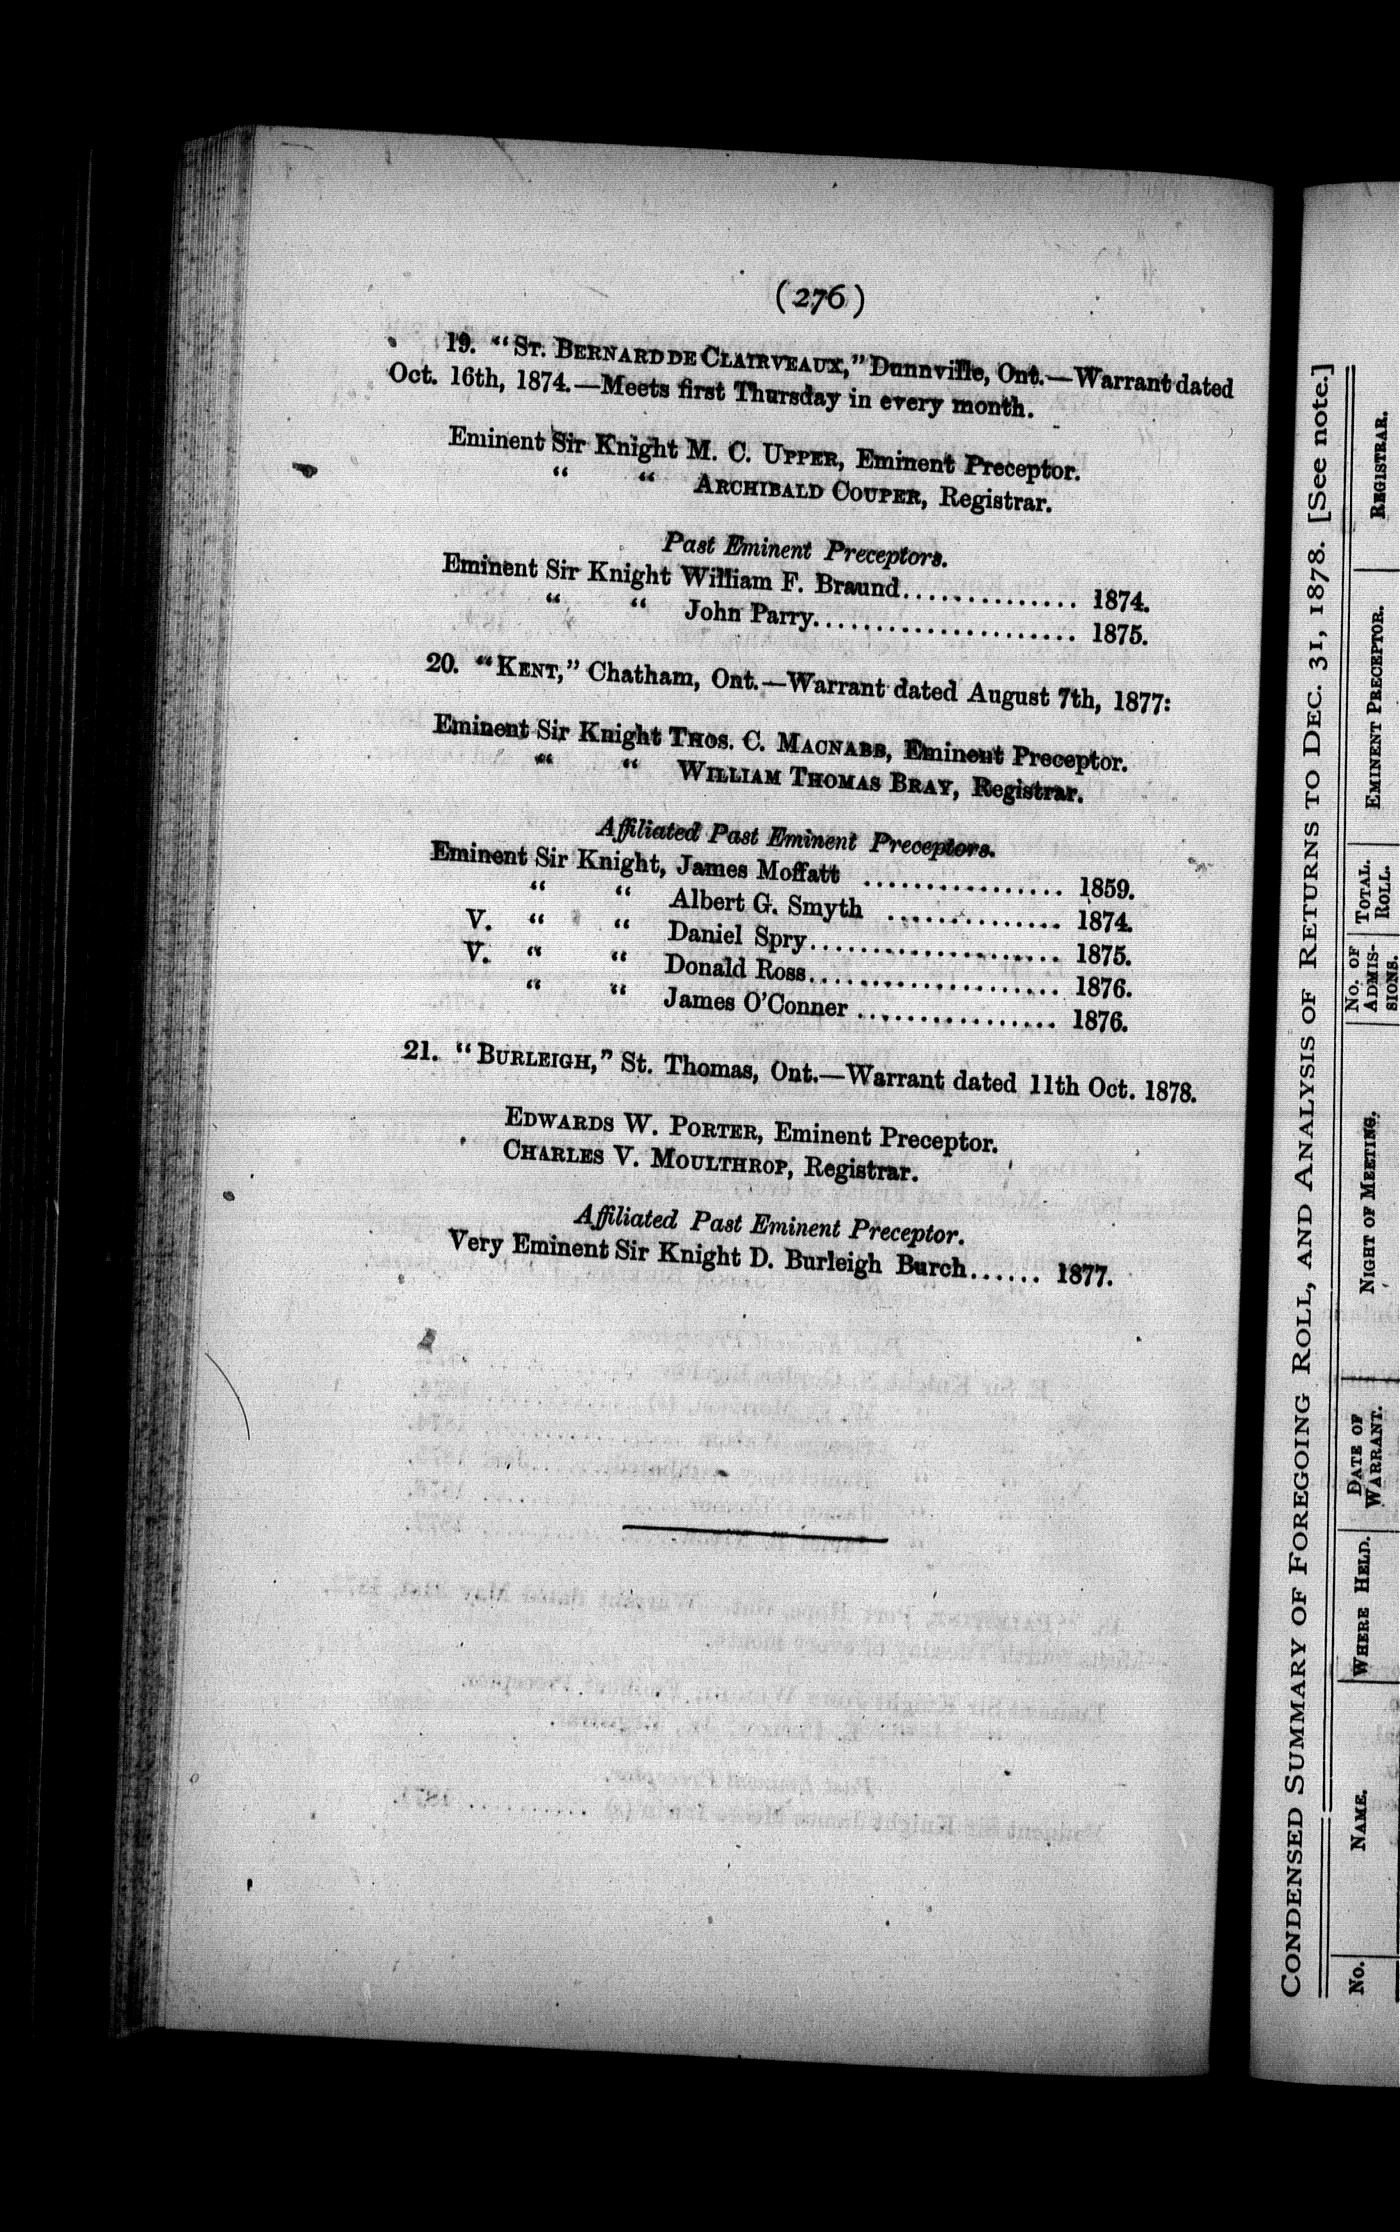 (276)
19. "ST. BERNARD DE CLAIRVEAUX," Dunnville, Ont.—Warrant dated
Oct. 16th, 1874.—Meets first Thursday in every month.
Eminent Sir Knight M. C. UPPER, Eminent Preceptor.
" " ARCHIBALD COUPER, Registrar.
Past Eminent Preceptors.
Eminent Sir Knight William F. Braund.............. 1874.
" " John Parry..................... 1875.
20. "KENT," Chatham, Ont.—Warrant dated August 7th, 1877:
Eminent Sir Knight THOS. C. MACNABB, Eminent Preceptor.
" " WILLIAM THOMAS BRAY, Registrar.
Affiliated Past Eminent Preceptors.
Eminent Sir Knight, James Moffatt ................ 1859.
" " Albert G. Smyth .............. 1874.
V. " " Daniel Spry.................... 1875.
V. " " Donald Ross.................... 1876.
" " James O'Conner ................ 1876.
21. "BURLEIGH," St. Thomas, Ont.—Warrant dated 11th Oct. 1878.
EDWARDS W. PORTER, Eminent Preceptor.
CHARLES V. MOULTHROP, Registrar.
Affiliated Past Eminent Preceptor.
Very Eminent Sir Knight D. Burleigh Burch...... 1877.
CONDENSED SUMMARY OF FOREGOING ROLL, AND ANALYSIS OF RETURNS TO DEC. 31, 1878. [See note.]
No.
NAME.
WHERE HELD.
DATE OF
WARRANT.
NIGHT OF MEETING.
No. OF
ADMIS-
SIONS.
TOTAL.
ROLL.
EMINENT PRECEPTOR.
REGISTRAR.